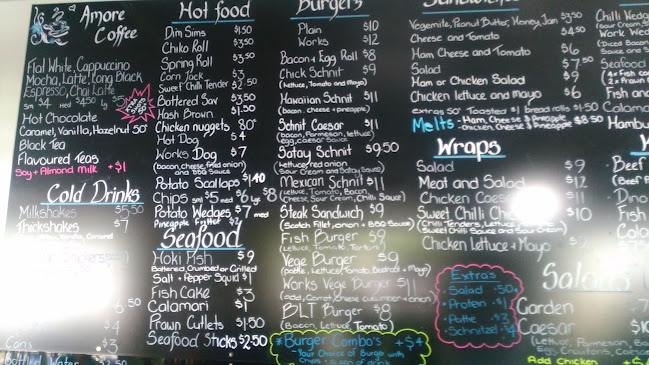 Amore
Coffee
Flat White, Cappuccino
Mocha, Latte, Long Black
Espresso, Chai Latte
sm $4 med $4.50 Lg $5
Hot Chocolate
Caramel, Vanilla, Hazelnut 50¢
Black Tea
Flavoured Teas
Soy + Almond Milk +$1
Cold Drinks
Milkshakes $5.50
Thickshakes $7
Cans
Bottled Water
Hot Food
Dim Sims $1.50
Chiko Roll $3.50
Spring Roll
Corn Jack
Sweet Chilli Tender $2.50
Battered Sav $3.50
Hash Brown $1.50
Chicken nuggets 80¢
Hot Dog $4
Works Dog $7
(bacon, cheese, fried onion
and BBQ Sauce)
Potato Scallops $1.40
Chips sm $5 med $6 Lg $8
Potato Wedges $7 med
Pineapple Fritter
Seafood
Hoki Fish $9
Battered, Crumbed or Grilled
Salt + Pepper Squid $1
Fish Cake $3
Calamari $1
Prawn Cutlets $1.50
Seafood Sticks $2.50
Burgers
Plain $10
Works $12
Bacon + Egg Roll $8
Chick Schnit $9
(Lettuce, Tomato and Mayo)
Hawaiian Schnit $11
(bacon, cheese + pineapple)
Schnit Caesar $11
(bacon, Parmesan, lettuce,
egg, caesar sauce)
Satay Schnit $9.50
(lettuce, red onion,
Sour Cream and Satay Sauce)
Mexican Schnit $11
(Lettuce, Tomato, Bacon,
Cheese, Sour Cream, Chilli Sauce)
Steak Sandwich $9
(Scotch Fillet, onion + BBQ Sauce)
Fish Burger $9
(Lettuce, Tomato, Tartare)
Vege Burger $9
(pattie, Lettuce, Tomato, Beetroot + Mayo)
Works Vege Burger $11
(add, Carrot, cheese cucumber + onion)
BLT Burger $8
(Bacon, Lettuce, Tomato)
*Burger Combo's +$4
-Your Choice of Burger with
Sandwiches
Vegemite, Peanut Butter, Honey, Jam $3.50
Cheese and Tomato $4
Ham Cheese and Tomato $6
Salad $7.50
Ham or Chicken Salad $9
Chicken lettuce and Mayo $6
Extras 50¢ Toasted $1 bread rolls $1.50
Melts - Ham, Cheese $ Pineapple
- chicken Cheese $ Pineapple $8.50
Wraps
Salad $9
Meat and Salad $12
Chicken Caesar $11
Sweet Chilli Chicken $10
(Chilli Tenders, Lettuce,
Sweet Chilli Sauce and Sour Cream)
Chicken Lettuce + Mayo $9
Extras
-Salad .50¢
-Protein $1
-Pattie $3
-Schnitzel $4
Salads
Garden $7
Caesar $10
(Lettuce, Parmesan, Bacon,
Egg, Croutons, Caesar
Add Chicken
Chilli
Seafood
Fish